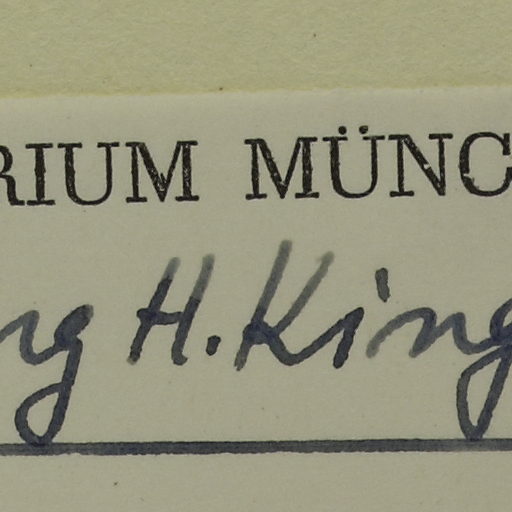 RIUM MÜNC
rg H. King